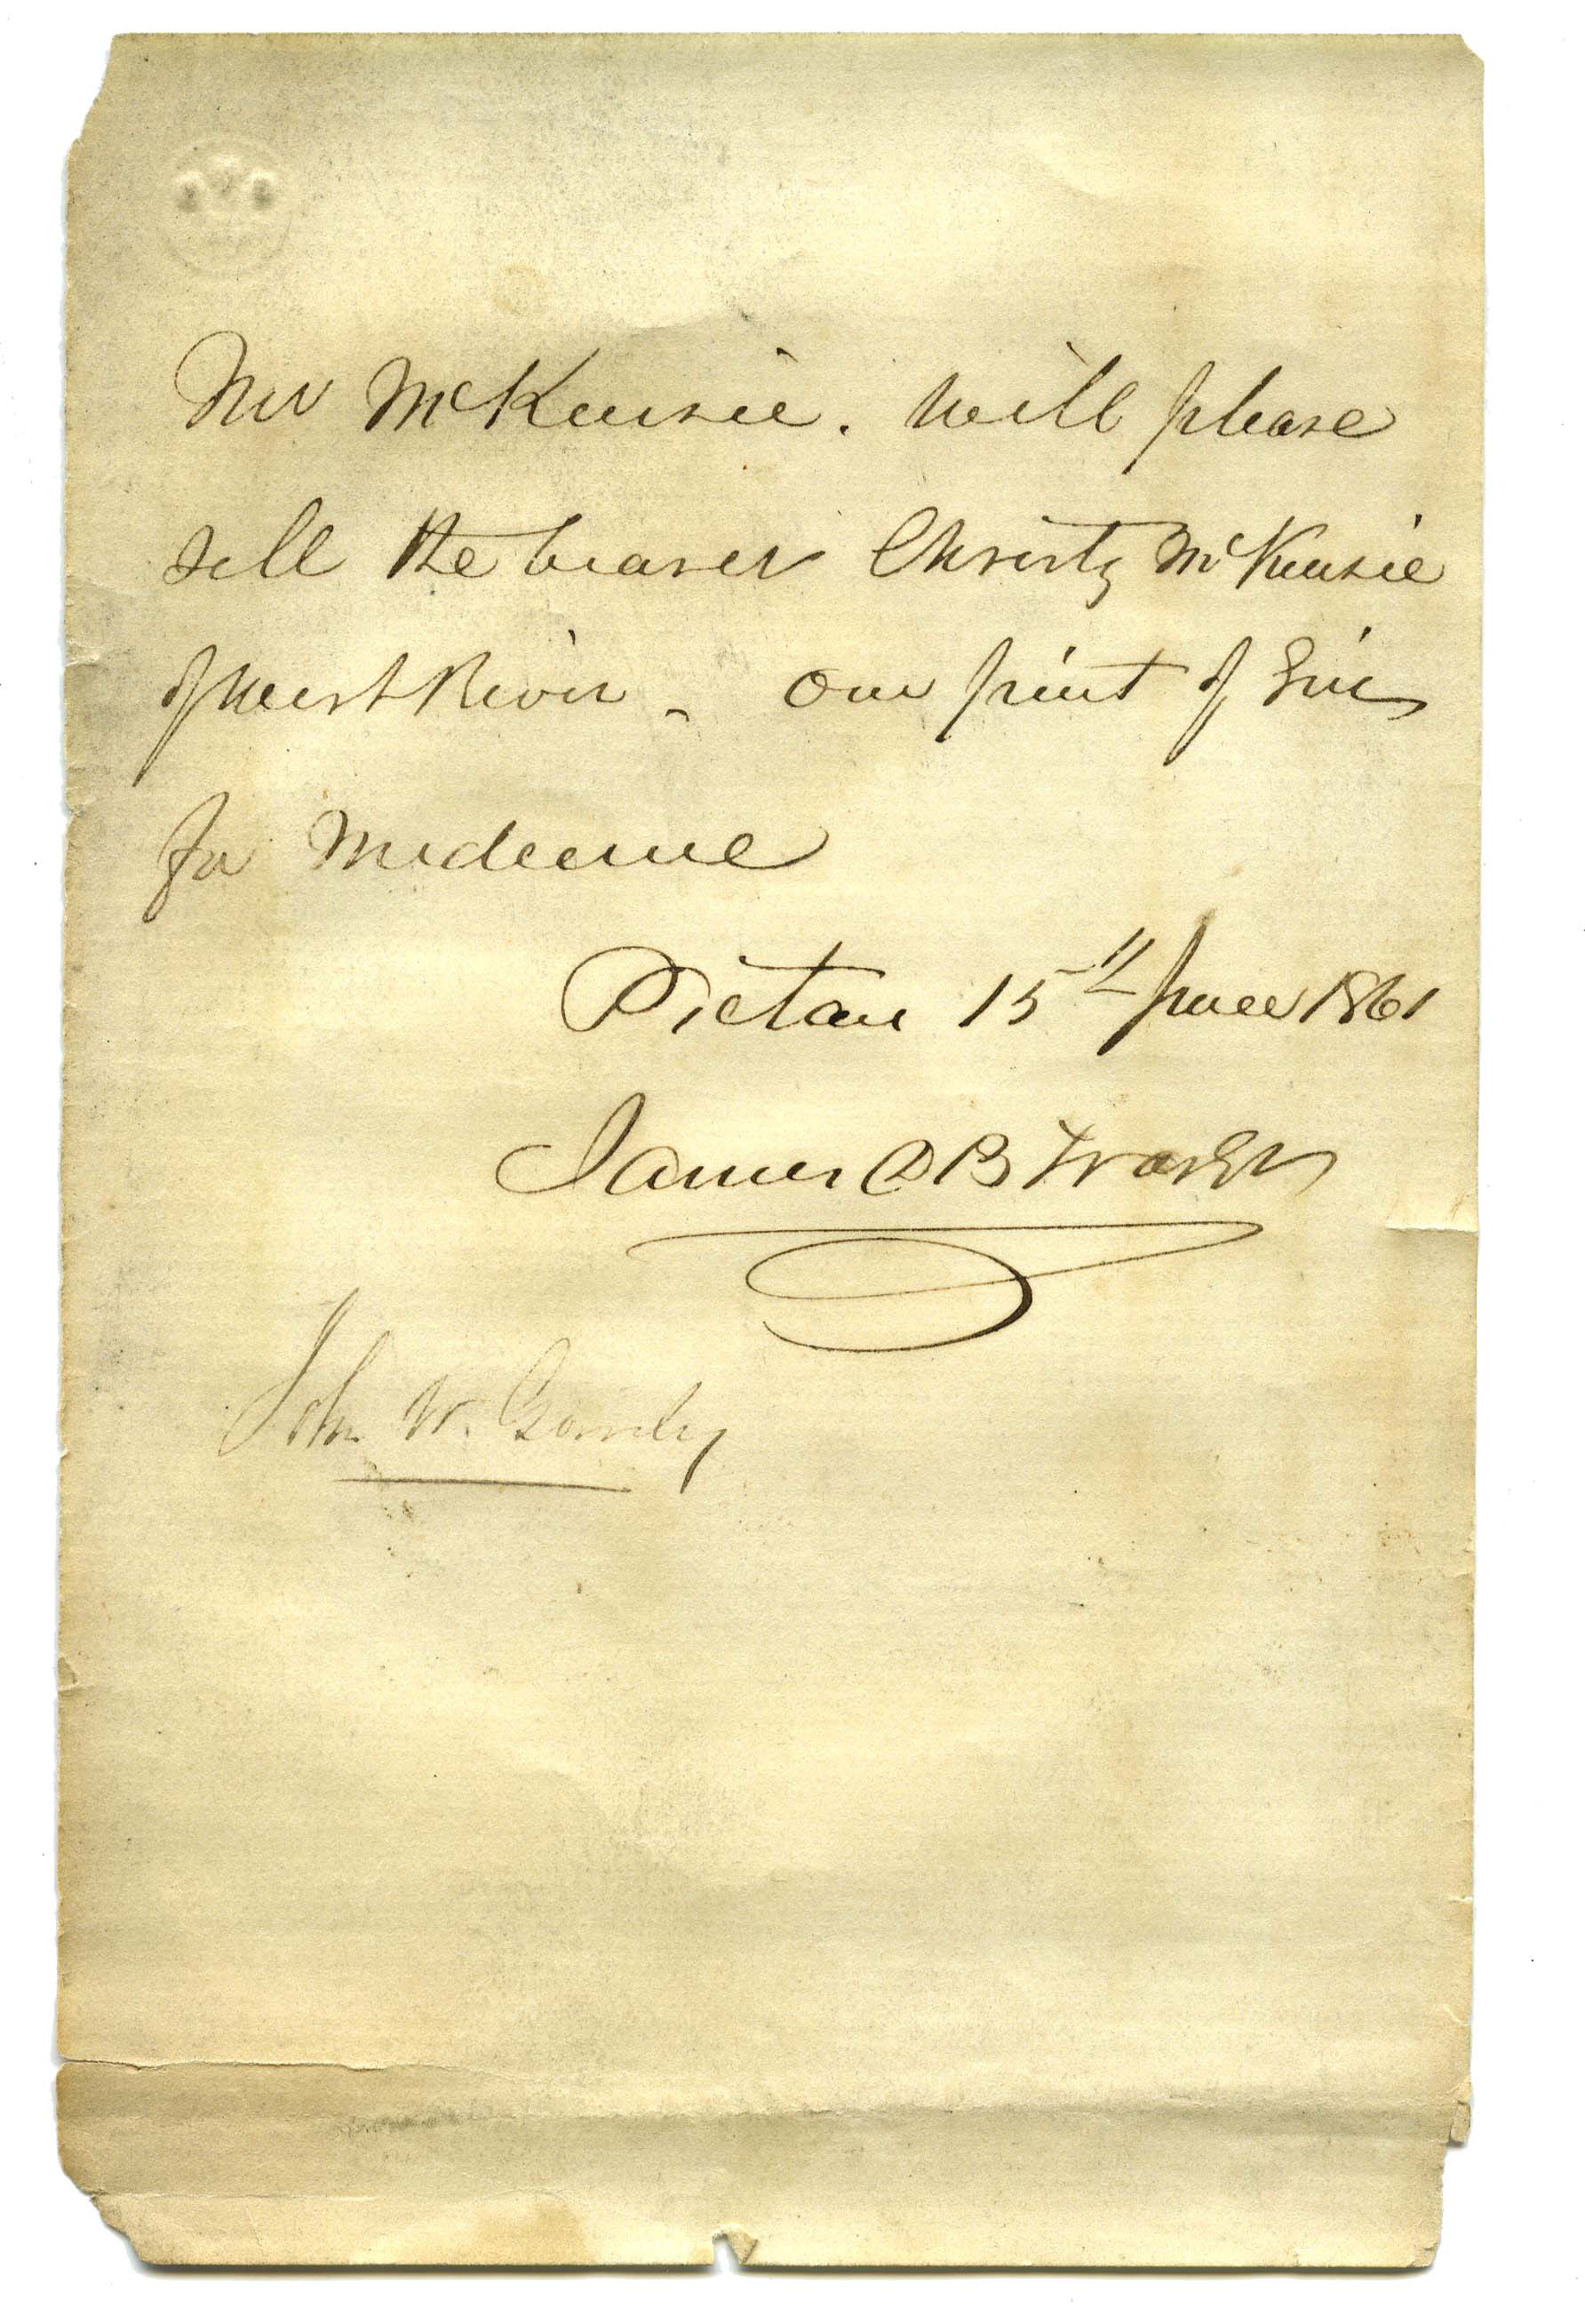 Mr McKensie. Will please
sell the bearer Christy McKensie
of West River - One pint of Gin
for Medecine
Pictou 15th June 1861
James D B Fraser
John W. Gourley